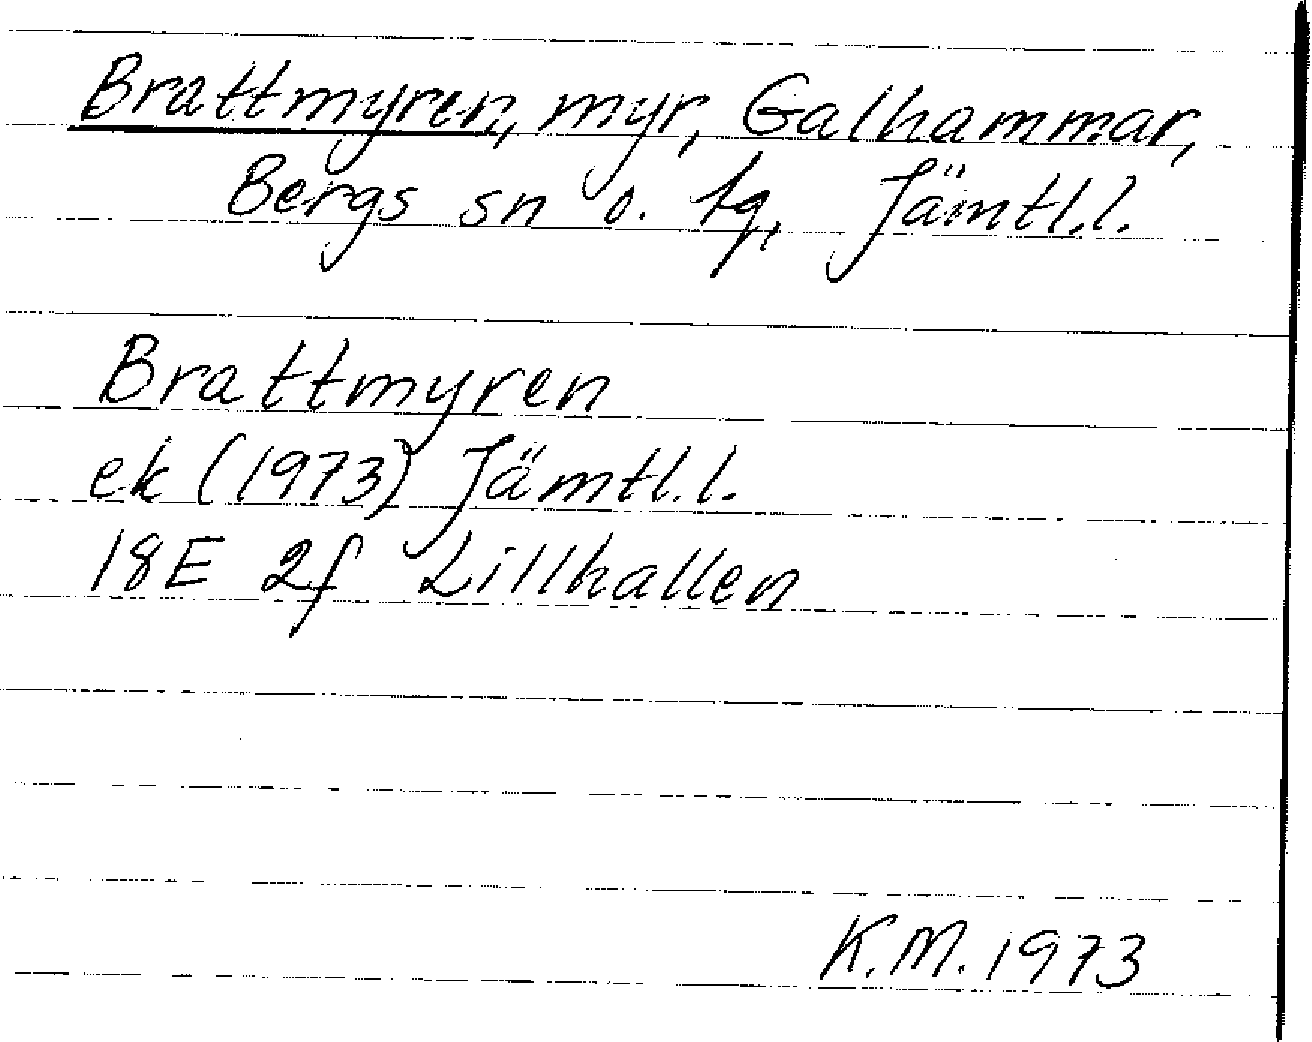 Brattmyren, myr, Galhammar,
Bergs sn o. tg, Jämtl.l.
Brattmyren
ek (1973) Jämtl.l.
18E 2f Lillhallen
K.M. 1973